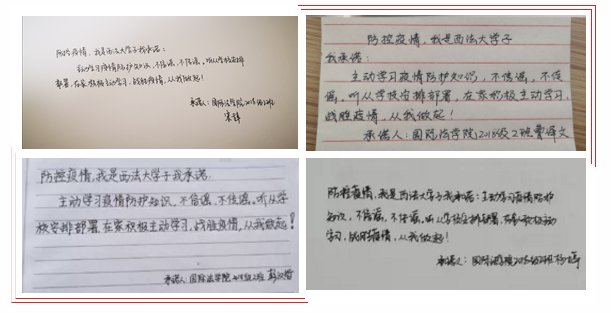 防控疫情，我是西法大学子我承诺：
主动学习疫情防护知识，不信谣，不传谣，听从学校安排
部署，在家积极主动学习，战胜疫情，从我做起！
承诺人：国际法学院2018级2班
防控疫情，我是西法大学子
我承诺：
主动学习疫情防护知识，不信谣，不传
谣，听从学校安排部署，在家积极主动学习，
战胜疫情，从我做起！
承诺人：国际法学院2018级2班
防控疫情，我是西法大学子我承诺
主动学习疫情防护知识、不信谣、不传谣。听从学
校安排部署在家积极主动学习，战胜疫情，从我做起！
承诺人：国际法学院2018级2班
防控疫情，我是西法大学子我承诺：主动学习疫情防护
知识，不信谣，不传谣，听从学校安排部署，在家积极主动
学习，战胜疫情，从我做起！
承诺人：国际法学院2018级2班